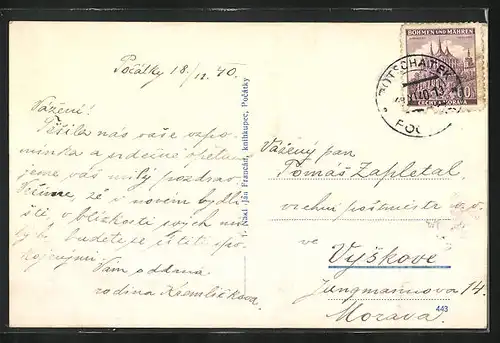 Počátky 18./12. 40.
Vážení!
Těšila nás vaše vzpo-
mínka a srdečně opětu-
jeme váš milý pozdrav.
Věříme, že v novém bydli-
šti, v blízkosti svých mi-
lých budete se cítiti spo-
kojenými
Vám oddaná
rodina
1. Nákl. Jan Frančán, knihkupec, Počátky
BÖHMEN UND MÄHREN
ČECHY A MORAVA
POTSCHATEK
POČ
Vážený pan
Tomáš Zapletal
vrchní poštmistr v.v.
ve
Vyškově
Jungmannova 14.
Morava.
443